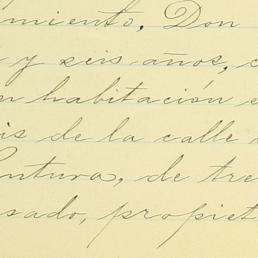 miento, Don
y seis años, c
n habitación e
is de la calle
entura, de tre
sado, propiet